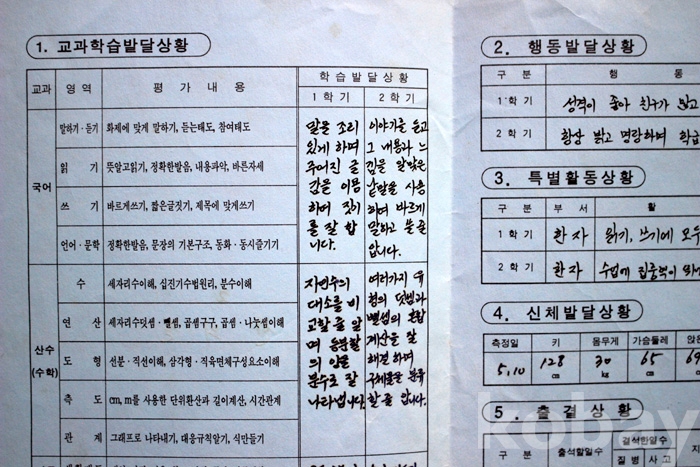 1. 교과학습발달상황
교과 영역 평가내용 학습발달상황
1학기 2학기
국어
말하기·듣기 화제에 맞게 말하기, 듣는태도, 참여태도
읽기 뜻알고읽기, 정확한발음, 내용파악, 바른자세
쓰기 바르게쓰기, 짧은글짓기, 제목에 맞게쓰기
언어·문학 정확한발음, 문장의 기본구조, 동화·동시즐기기
말을 조리
있게 하며
주어진 글
감을 이용
하여 짓기
를 잘 합
니다.
이야기를 듣고
그 내용과 느
낌을 알맞은
낱말을 사용
하여 바르게
말하고 쓸 줄
압니다.
산수
(수학)
수 세자리수이해, 십진기수법원리, 분수이해
연산 세자리수덧셈·뺄셈, 곱셈구구, 곱셈·나눗셈이해
도형 선분·직선이해, 삼각형·직육면체구성요소이해
측도 cm, m를 사용한 단위환산과 길이계산, 시간관계
관계 그래프로 나타내기, 대응규칙알기, 식만들기
자연수의
대소를 비
교할 줄 알
며 등분할
의 양을
분수로 잘
나타냅니다.
여러가지 유
형의 덧셈과
뺄셈의 혼합
계산을 잘
해결하며
구체물을 분류
할 줄 압니다.
2. 행동발달상황
구분 행동
1학기 성격이 좋아 친구가 많고
2학기 항상 밝고 명랑하며 학급
3. 특별활동상황
구분 부서 활
1학기 한자 읽기, 쓰기에 모두
2학기 한자 수업에 집중력이
4. 신체발달상황
측정일 키 몸무게 가슴둘레 앉은
5.10 128cm 30kg 65cm 69
5. 출결상황
구분 출석할일수 결석한일수
질병 사고
kobay